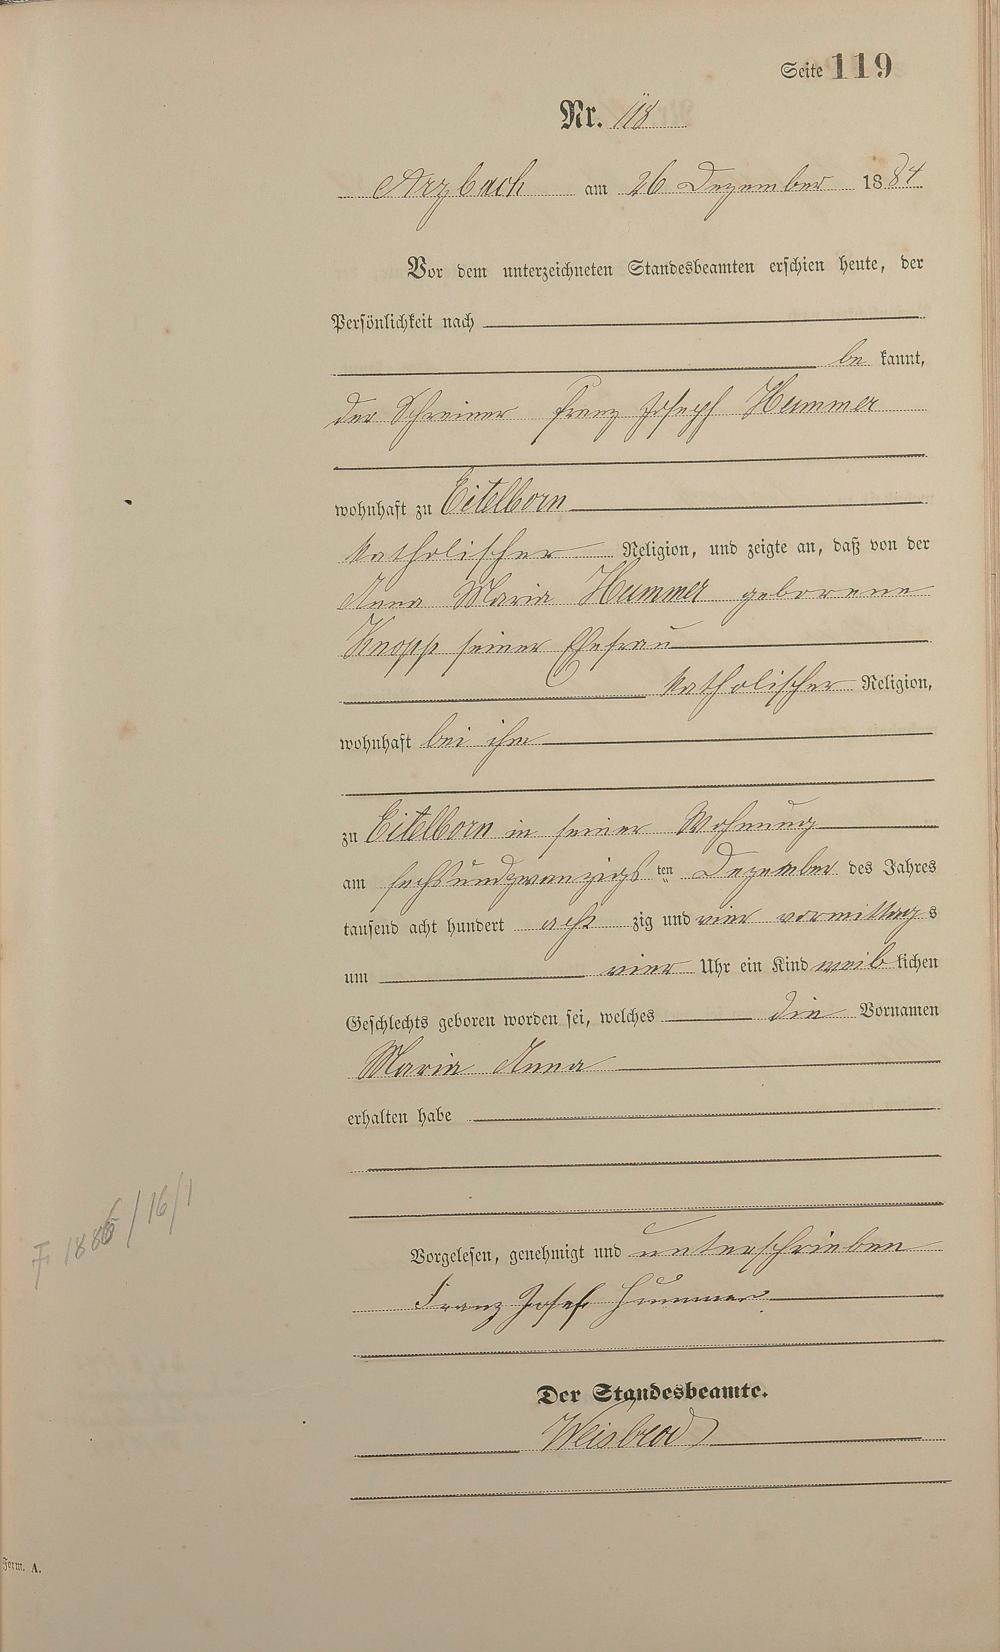 Seite 119
Nr. 118
Arzbach am 26 Dezember 1884
Vor dem unterzeichneten Standesbeamten erschien heute, der
Persönlichkeit nach
be kannt,
der Schreiner Franz Joseph Hummer
wohnhaft zu Eitelborn
katholischer Religion, und zeigte an, daß von der
Anna Maria Hummer geborene
Knopp seiner Ehefrau
katholischer Religion,
wohnhaft bei ihm
zu Eitelborn in seiner Wohnung
am sechsundzwanzigs ten Dezember des Jahres
tausend acht hundert acht zig und vier vormittag s
um vier Uhr ein Kind weib lichen
Geschlechts geboren worden sei, welches die Vornamen
Maria Anna
erhalten habe
F 1886/16/1
Vorgelesen, genehmigt und unterschrieben
Franz Josef Hummer
Der Standesbeamte.
Weisbrod
Form. A.